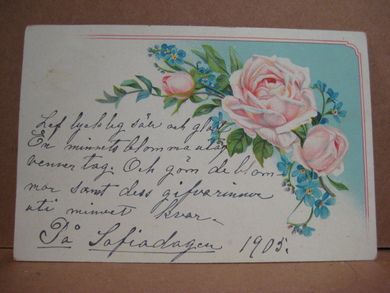 Lef lycklig säll och glad
En minnets blomma utaf
venner tag. Och göm de blom-
mor samt dess gifvarinna
uti minnet kvar.
På Sofiadagen 1905.